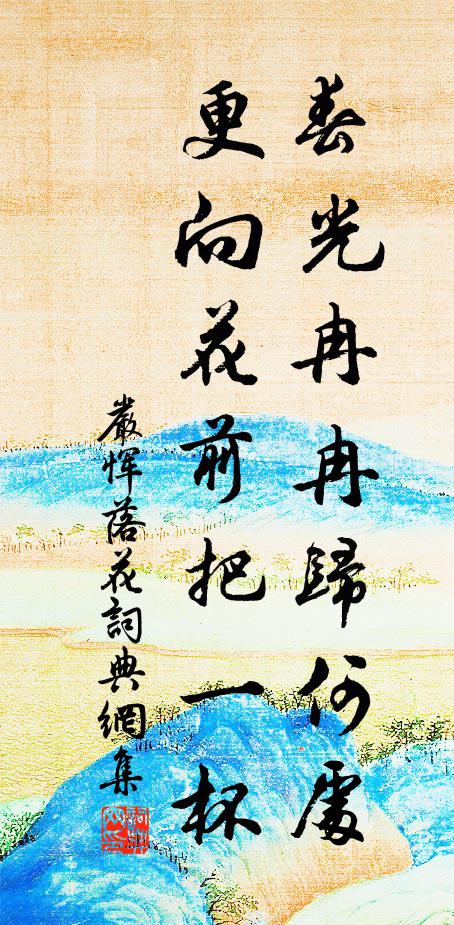 春光冉冉歸何處
更向花前把一杯
嚴惲落花詞典網集